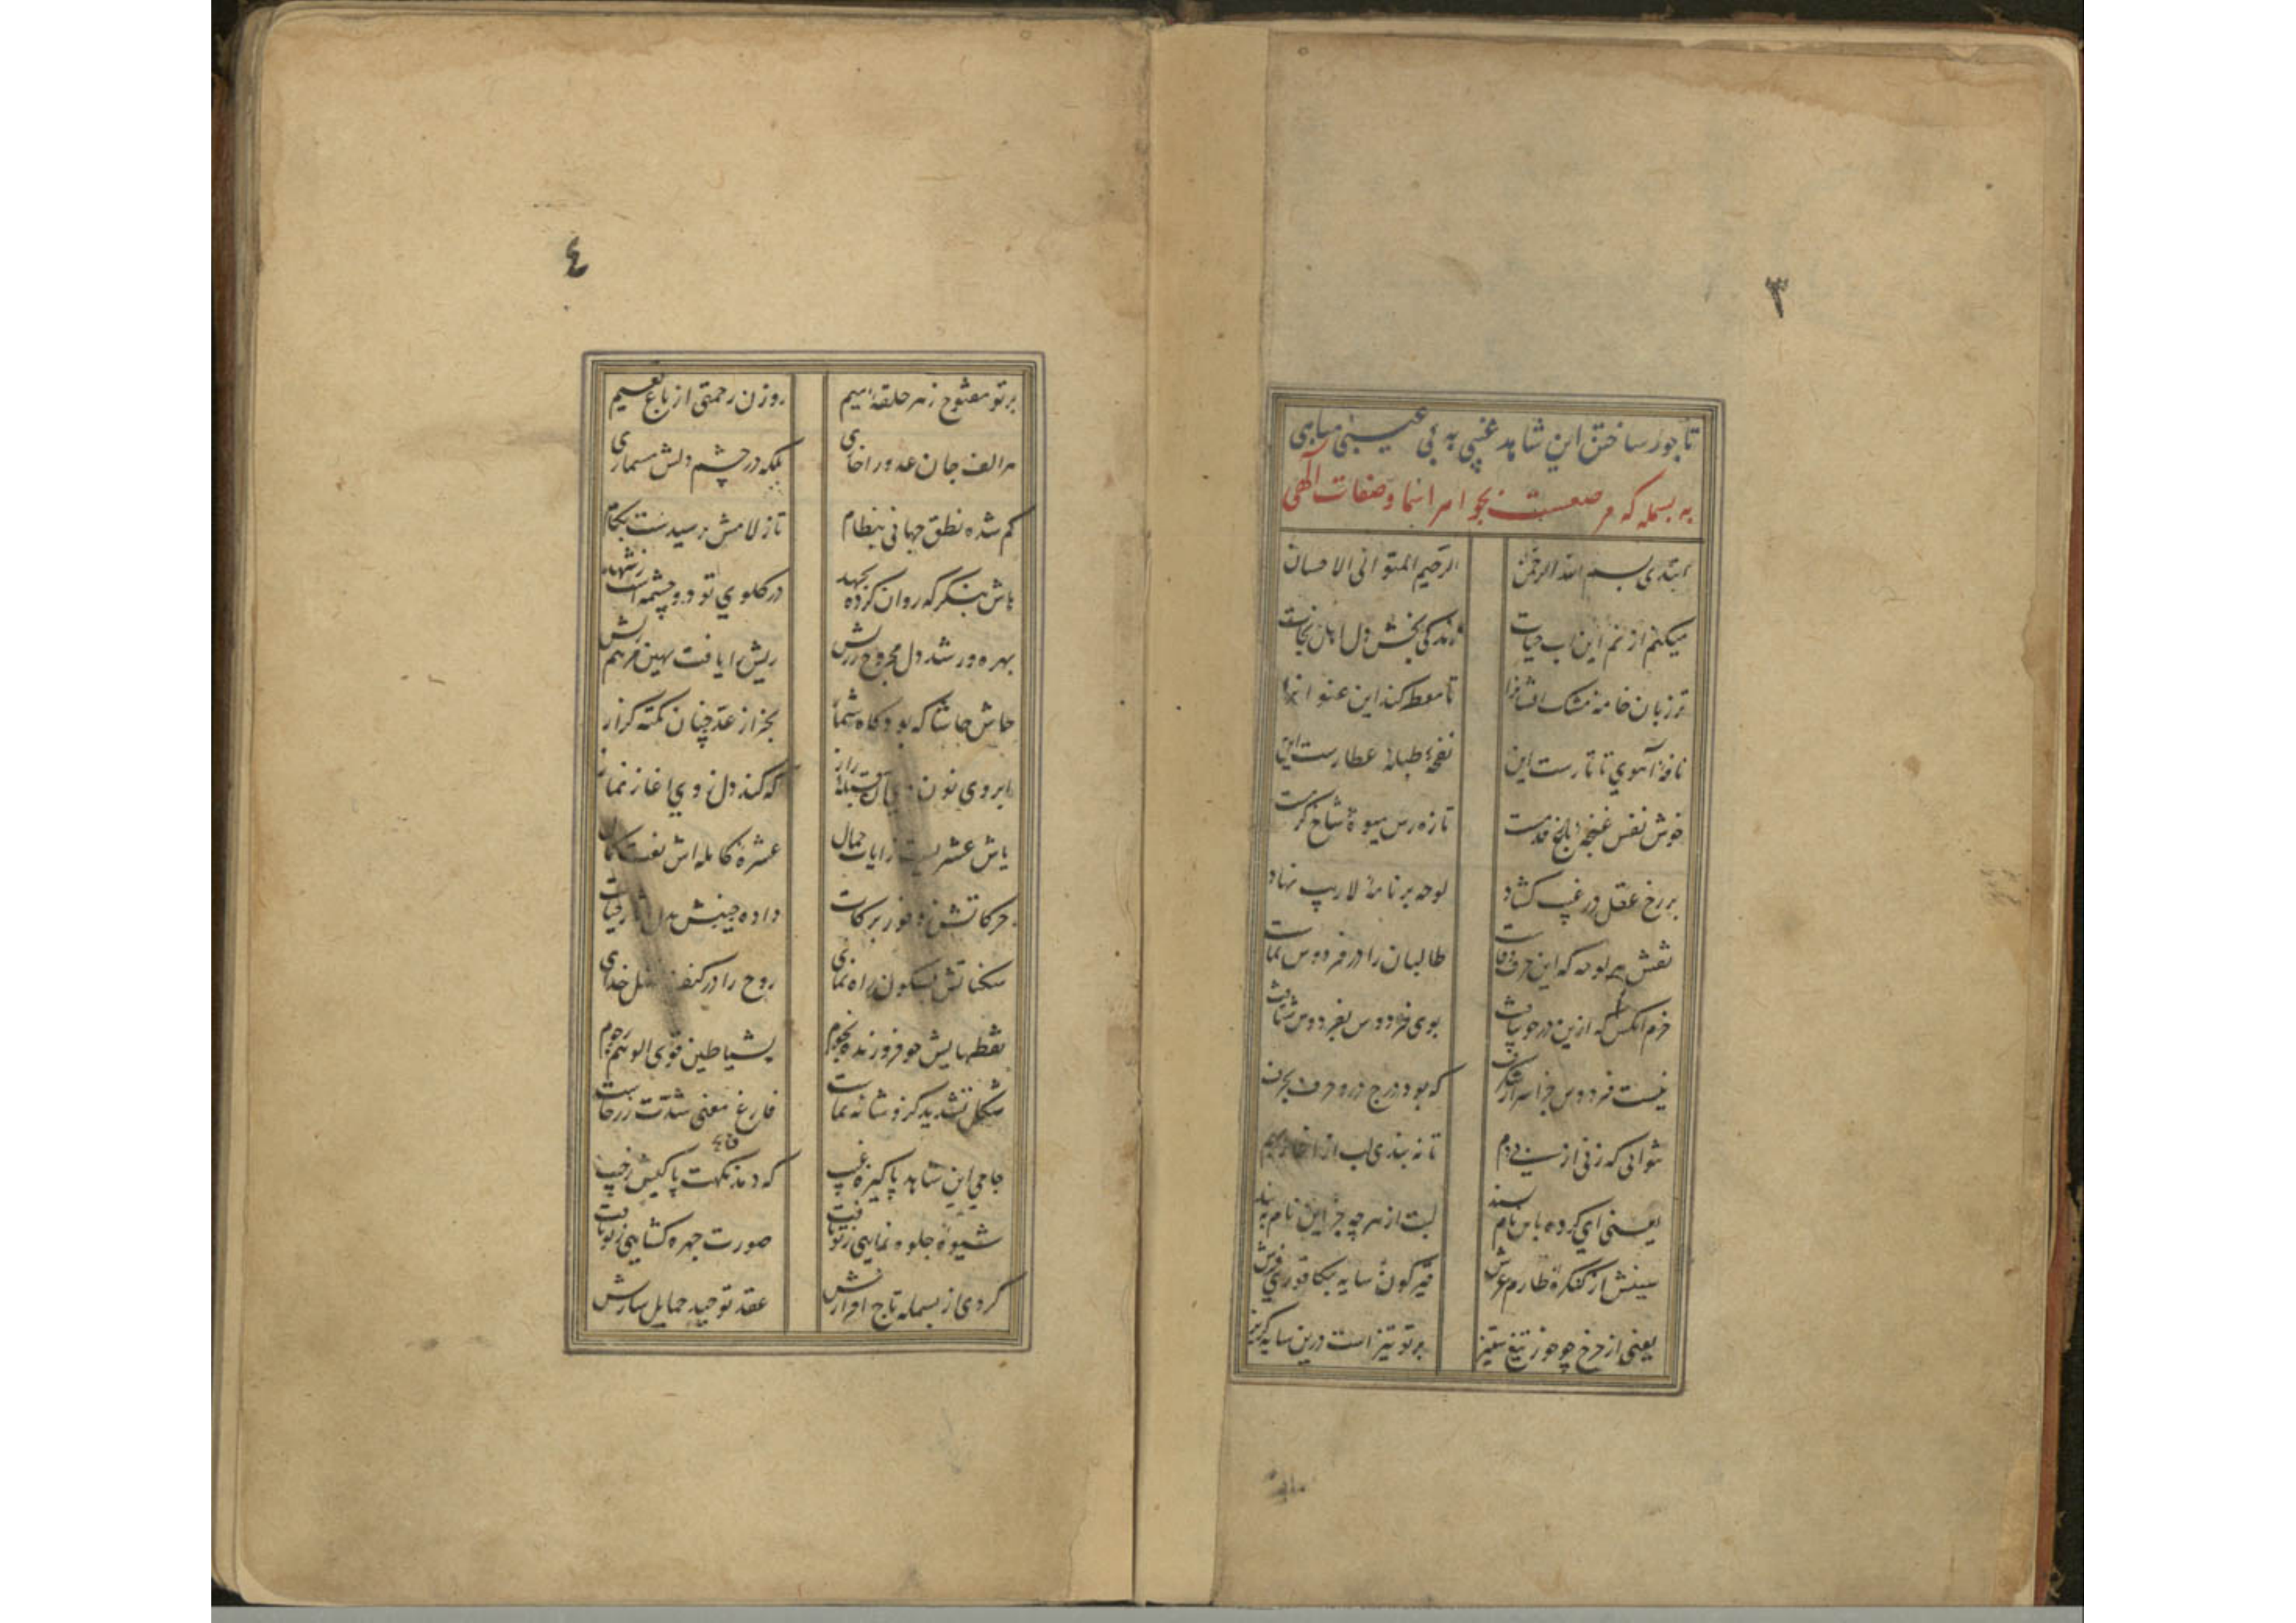 ٣
تاجور ساختن این شاهد غیبی به بی عیبی مباهی
به بسمله که مرصعست بجواهر اسما و صفات آلهی
ابتدی بسم الله الرحمن الرحیم المتوالی الاحسان
میکنم از نم این اب حیات زندگی بخش دل اهل نجات
تر زبان خامه مشک افشانرا تا معطر کند این عنوانرا
نافه آهوی تاتارست این نفحه طبله عطارست این
خوش نفس غنچه باغ قدمست تازه رس میوه شاخ کرمست
بر رخ عقل در غیب کشاد لوحه بر نامه لاریب نهاد
نقش هر لوحه که این حرف وفاست طالبان را در فردوس نماست
خرم انکس که ازین در چو بتافت بوی فردوس بفردوس شتافت
نیست فردوس جز اسرار شکرف که بود درج درو حرف بحرف
نتوانی که زنی از سین دم تا نه بندی لب از اغاز بهم
یعنی ای کرده باین نام پسند لبت از هر چه جز این نام به بند
سینش از کنکره طارم عرش قیرکون سایه بکافوری فرش
یعنی از چرخ چو خور تیغ ستیز بر تو تیز است درین سایه کریز
٤
بر تو مفتوح ز هر حلقه میم روزن رحمتی از باغ نعیم
هر الف جان عدو را خاری بلکه در چشم دلش مسماری
کم شده نطق جهانی بنظام تا ز لامش برسیدست بکام
هاش بنکر که روان کرده بجهد در کلوی تو دو چشمه است ز شهد
بهره ور شد دل مجروح ز رش ریش را یافت بهین مرهم رش
حاش حاشا که بود کاه شمار بجز از عد چنان نکته کزار
ابروی نون وی آن قبله راز که کند دل ز وی اغاز نماز
یاش عشریست ز ایات جمال عشره کامله اش نعت کمال
حرکاتش ز وفور برکات داده جنبش بدل اثار حیات
سکناتش بسکون راه نمای روح را در کنف فضل خدای
نقطهایش چو فروزنده نجوم بشیاطین قوی الوهم رجوم
شکل تشدید کزو شانه نماست فارغ معنی شدت زرخاست
جامی این شاهد پاکیزه غیب که دمد نکهت پاکیش ز جیب
شیوه جلوه نمایی ز تو یافت صورت چهره کشایی ز تو یافت
کردی از بسمله تاج افرازش عقد توحید حمایل سازش